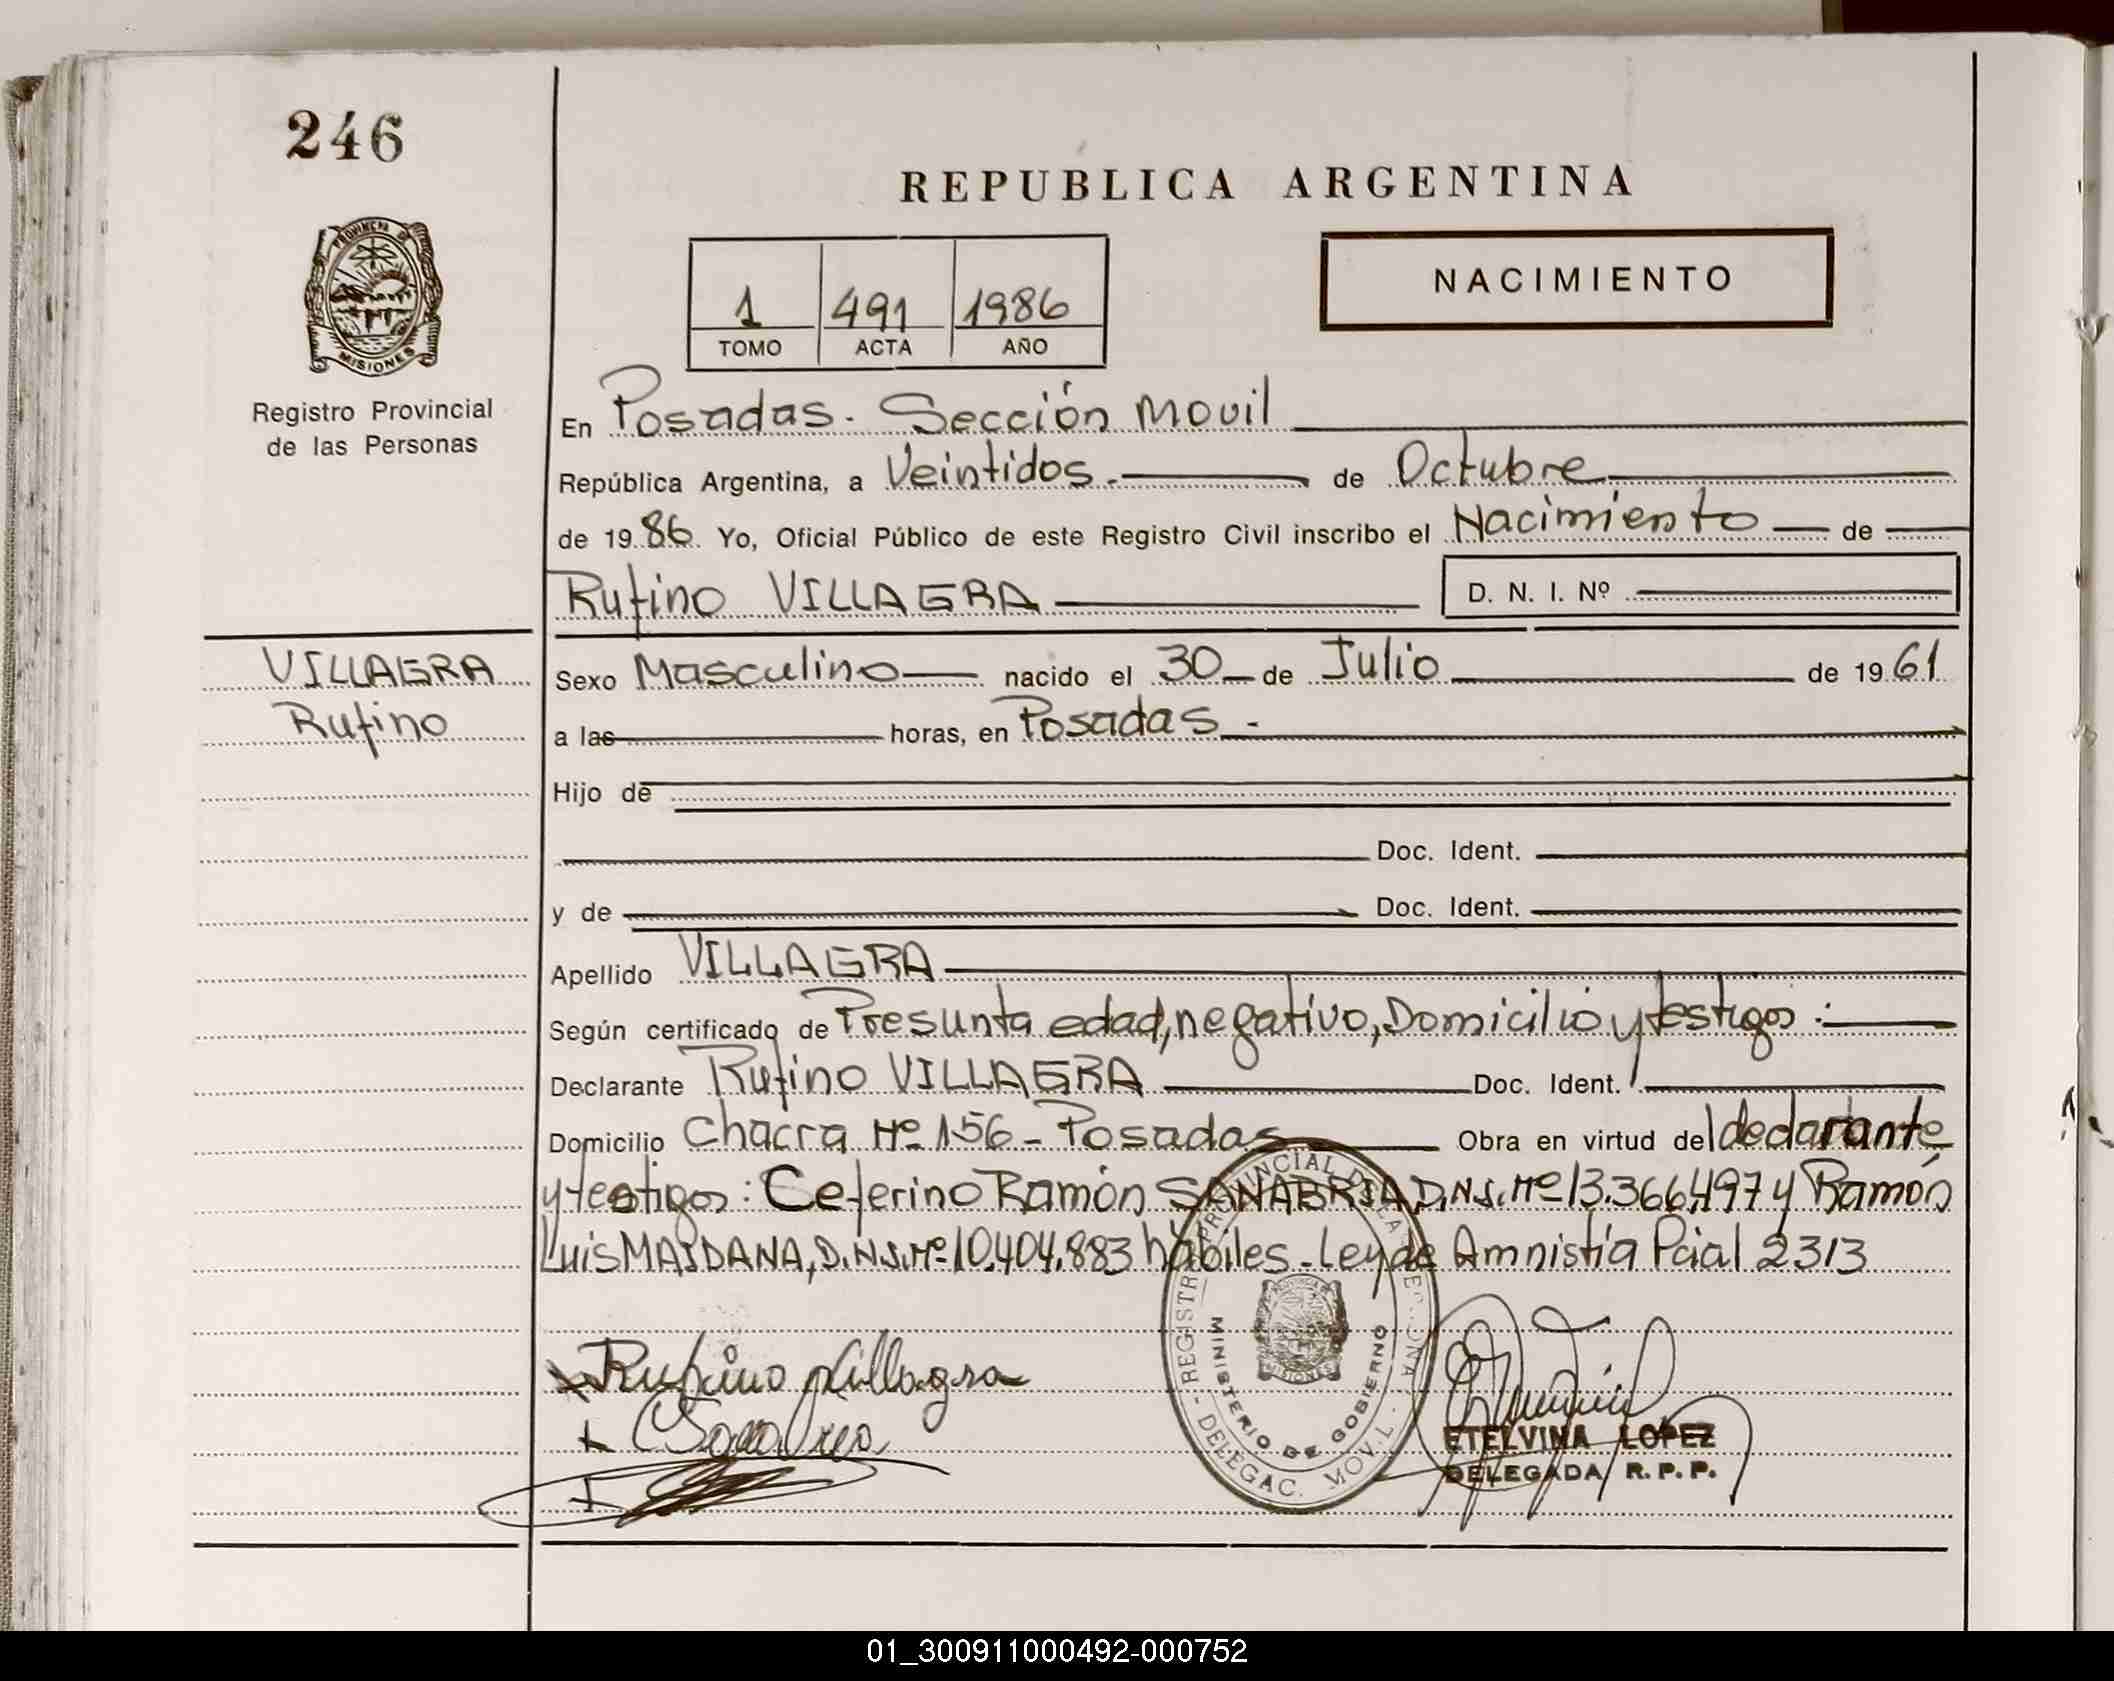 246
REPUBLICA ARGENTINA
PROVINCIA DE
MISIONES
NACIMIENTO
1 491 1986
TOMO ACTA AÑO
Registro Provincial
de las Personas
En Posadas. Sección Movil
República Argentina, a Veintidos. de Octubre
de 1986 Yo, Oficial Público de este Registro Civil inscribo el Nacimiento de
Rufino VILLAGRA D. N. I. Nº
VILLAGRA
Rufino
Sexo Masculino nacido el 30 de Julio de 1961
a las horas, en Posadas.-
Hijo de
Doc. Ident.
y de Doc. Ident.
Apellido VILLAGRA
Según certificado de Presunta edad, negativo, Domicilio y testigos:
Declarante Rufino VILLAGRA Doc. Ident.
Domicilio Chacra Nº 156 - Posadas Obra en virtud del declarante
y testigos: Ceferino Ramón SANABRIA, D.N.I. Nº 13.366.497 y Ramón
Luis MAIDANA, D.N.I. Nº 10.404.883 hábiles. Ley de Amnistía Pcial 2313
Rufino Villagra
REGISTRO PROVINCIAL DE LAS PERSONAS
MINISTERIO DE GOBIERNO
DELEGAC. MOVIL
MISIONES
ETELVINA LOPEZ
DELEGADA R.P.P.
01_300911000492-000752